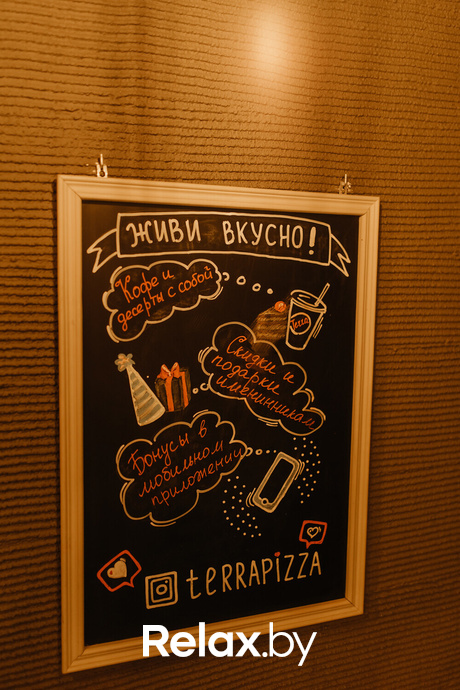 ЖИВИ ВКУСНО!
Кофе и
десерты с собой
Terra
Скидки и
подарки
именинникам
Бонусы в
мобильном
приложении
terrapizza
Relax.by